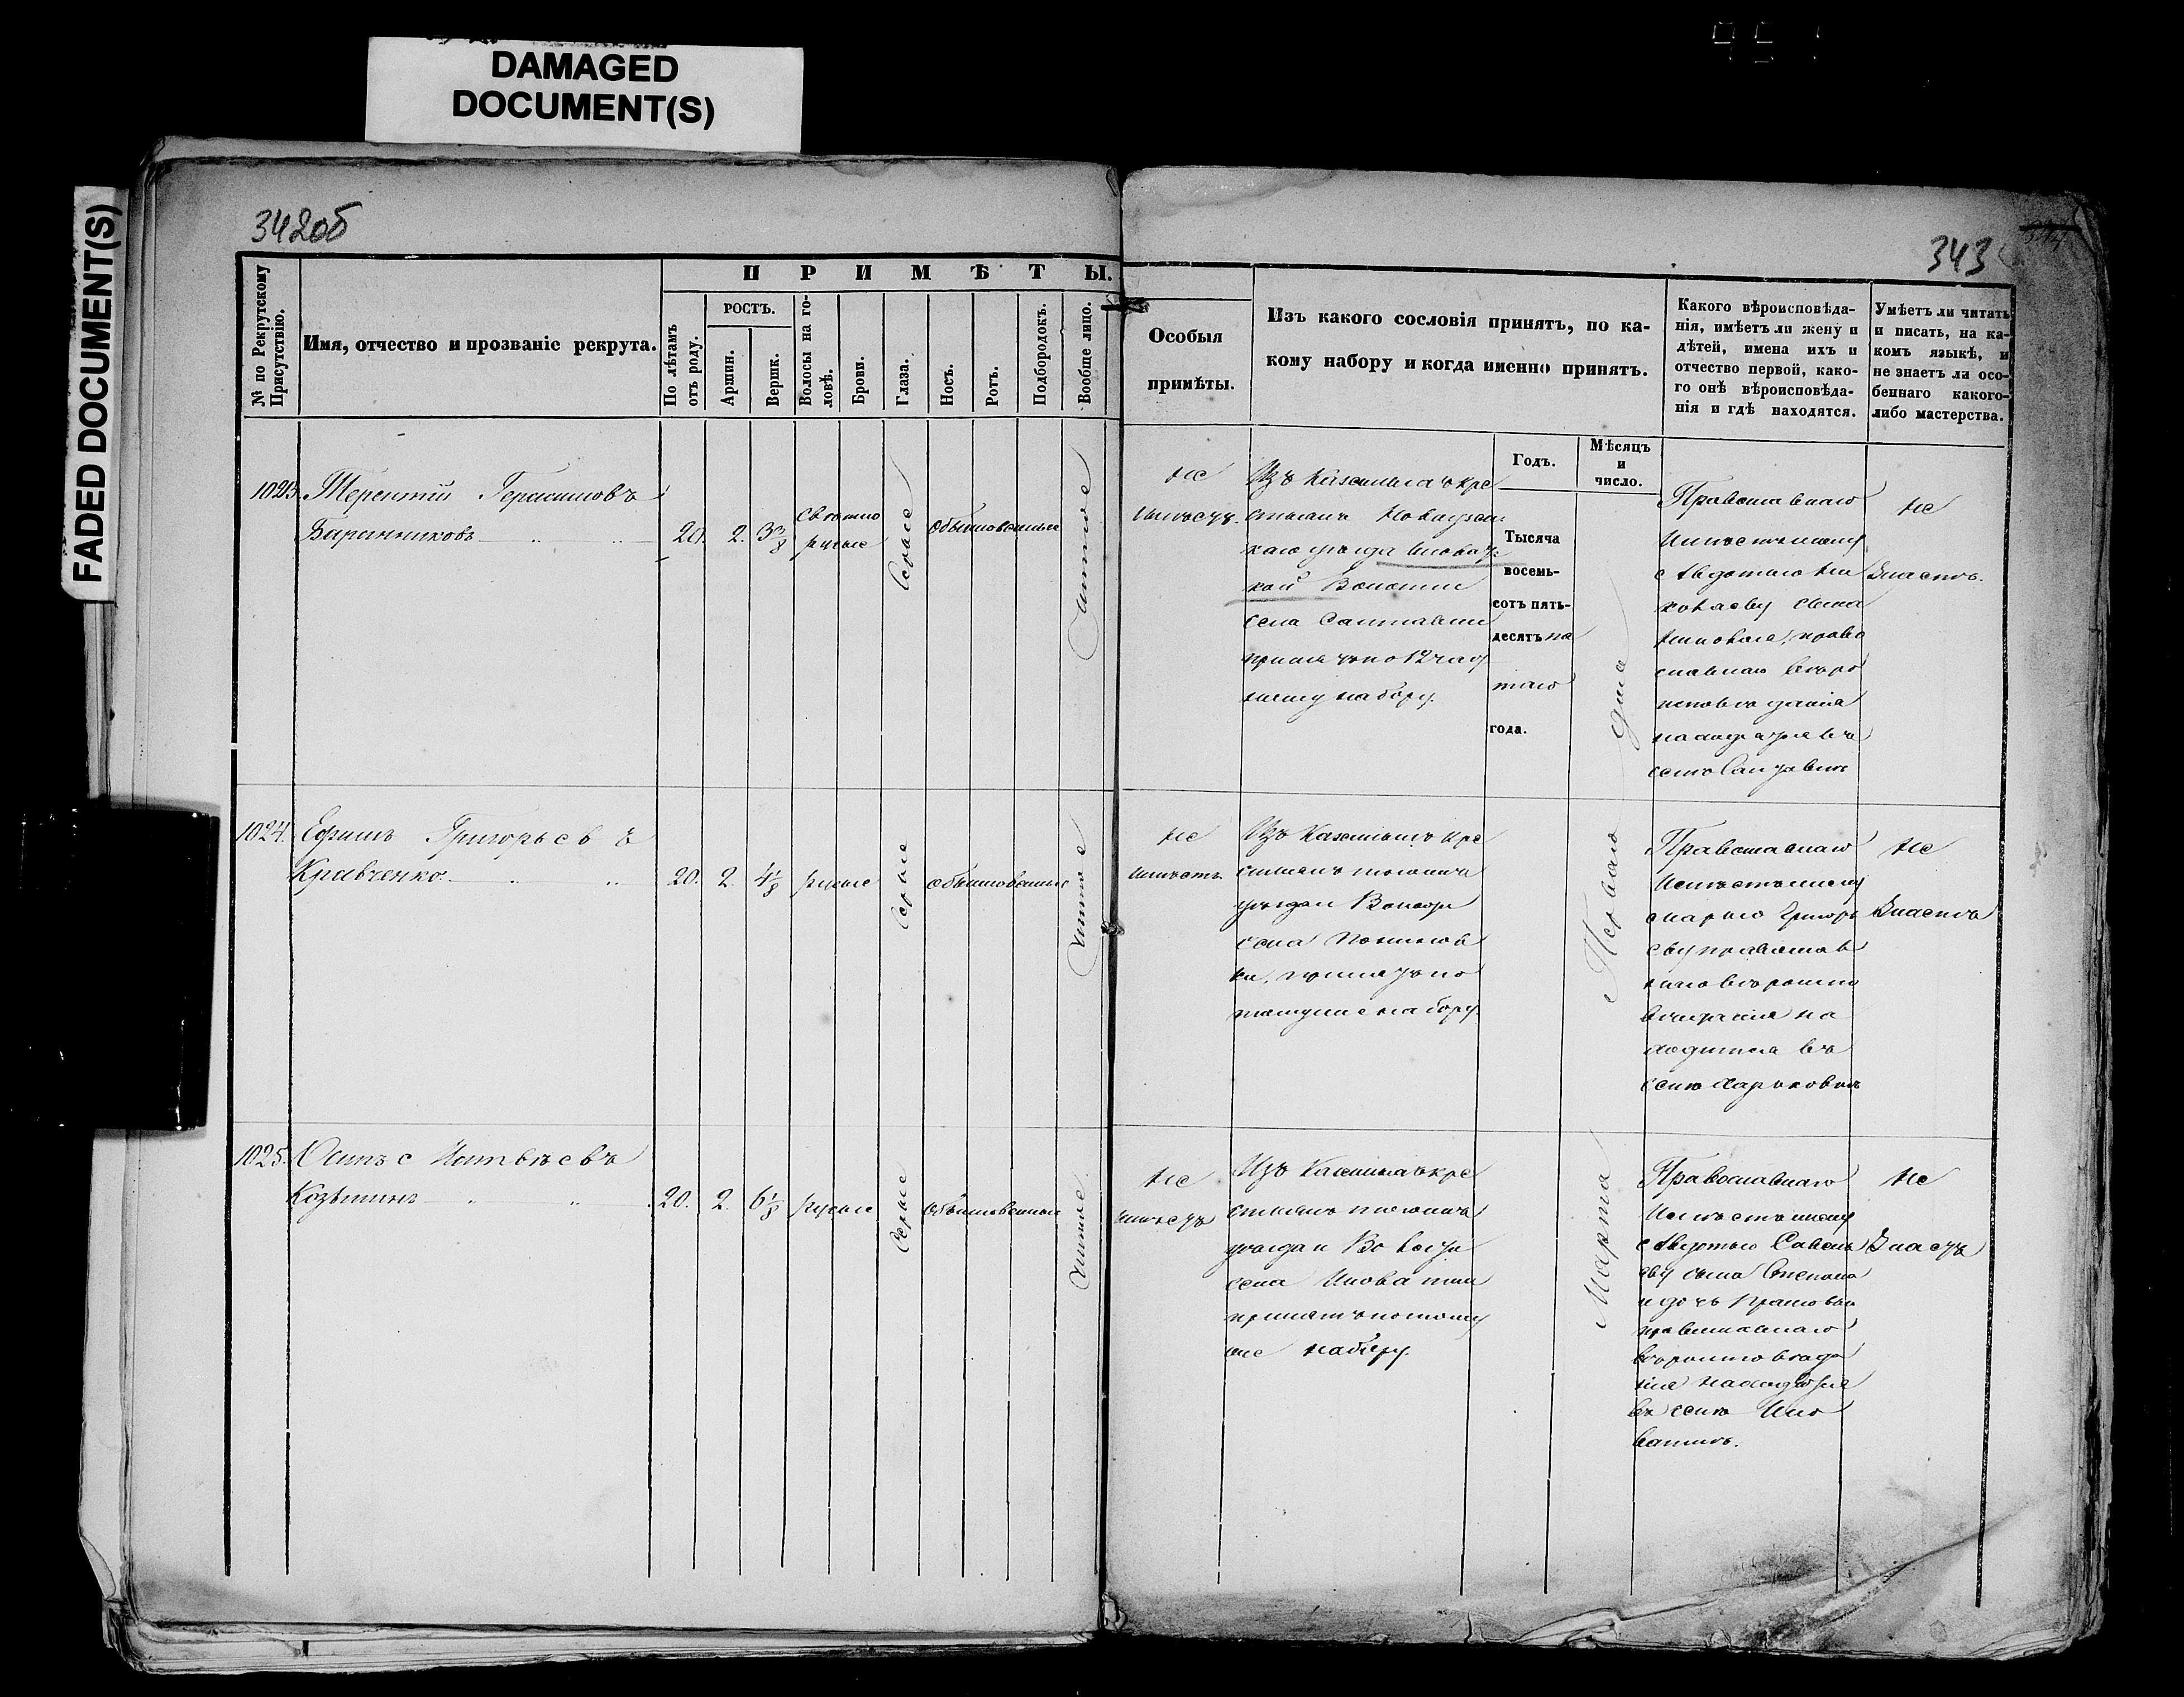 DAMAGED
DOCUMENT(S)
FADED DOCUMENT(S)
342об
343
№ по Рекрутскому
Присутствію.
Имя, отчество и прозваніе рекрута.
ПРИМѢТЫ.
По лѣтамъ
отъ роду.
РОСТЪ.
Аршин.
Вершк.
Волосы на го-
ловѣ.
Брови.
Глаза.
Носъ.
Ротъ.
Подбородокъ.
Вообще лицо.
Особыя
примѣты.
Изъ какого сословія принятъ, по ка-
кому набору и когда именно принятъ.
Годъ.
Мѣсяцъ
и
число.
Какого вѣроисповѣда-
нія, имѣетъ ли жену и
дѣтей, имена ихъ и
отчество первой, како-
го онѣ вѣроисповѣда-
нія и гдѣ находятся.
Умѣетъ ли читать
и писать, на ка-
комъ языкѣ, и
не знаетъ ли осо-
беннаго какого-
либо мастерства.
1023. Терентій Герасимовъ
Баранниковъ
20. 2. 3 3/8
свѣтло
русые
Сѣрые
обыкновенные
Чистое
не
имѣетъ.
Изъ Казенныхъ кре
стьянъ Новоузен
скаго уѣзда
кой Волости
села
принятъ по 12 час
тному набору.
Тысяча
восемь-
сотъ пять-
десятъ пя
таго
года.
Перваго дня
Марта
Православнаго
Имѣетъ жену
Авдотью Ни
колаеву сына
право
славнаго вѣро
исповѣданія
находятся въ
селѣ
не
Знаетъ.
1024. Ефимъ Григорьевъ
Кравченко
20. 2. 4 1/8
русые
Сѣрые
обыкновенные
Чистое
не
имѣетъ
Изъ Казенныхъ кре
стьянъ тогожъ
уѣзда и Волости
села
принятъ по
томуже набору.
Православнаго
Имѣетъ жену
Марью Григорь
еву православ
наго вѣроиспо
вѣданія на
ходится въ
селѣ Харьковкѣ
не
Знаетъ
1025. Осипъ
Козьминъ
20. 2. 6 1/8
русые
Сѣрые
обыкновенные
Чистое
не
имѣетъ
Изъ Казенныхъ кре
стьянъ тогожъ
уѣзда и Волости
села
принятъ потому
же набору.
Православнаго
Имѣетъ жену
Авдотью Савель
еву сына Степана
и дочь Прасковью
православнаго
вѣроисповѣда
нія находятся
въ селѣ
не
Знаетъ